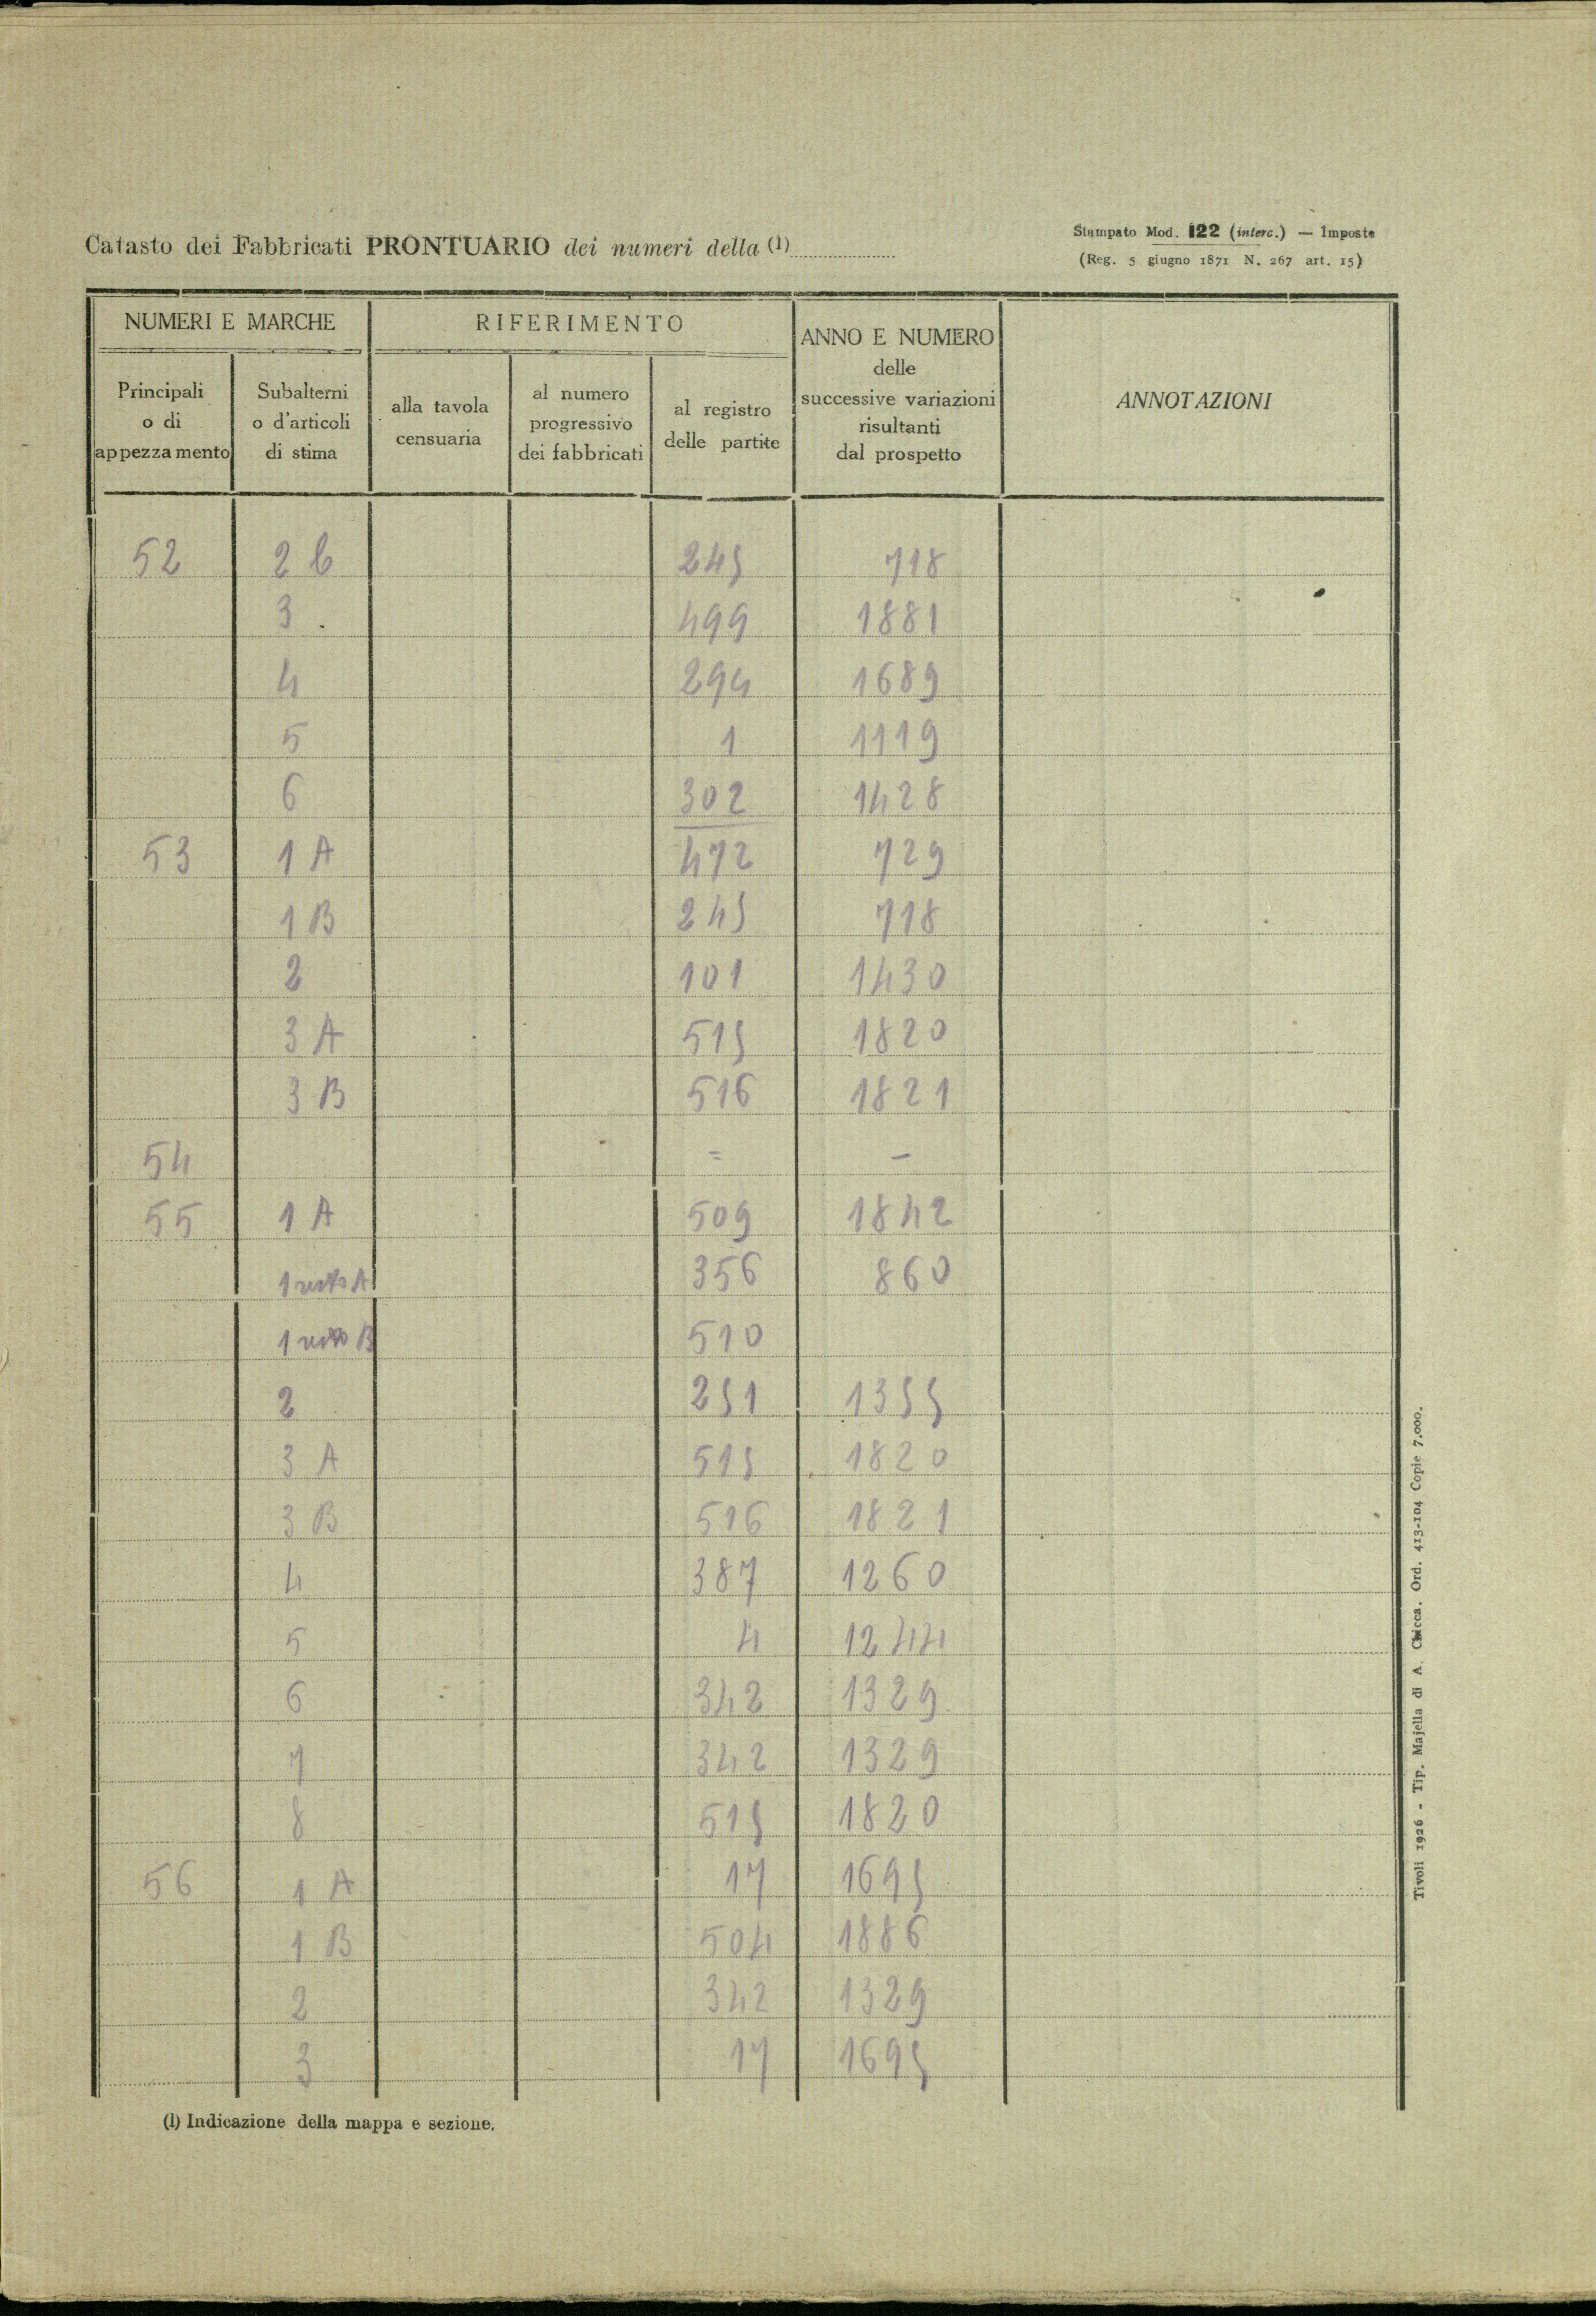 Catasto dei Fabbricati PRONTUARIO dei numeri della (1)
Stampato Mod. 122 (interc.) — Imposte
(Reg. 5 giugno 1871 N. 267 art. 15)
NUMERI E MARCHE
RIFERIMENTO
ANNO E NUMERO
delle
successive variazioni
risultanti
dal prospetto
ANNOTAZIONI
Principali
o di
appezzamento
Subalterni
o d'articoli
di stima
alla tavola
censuaria
al numero
progressivo
dei fabbricati
al registro
delle partite
52 2 b 245 718
3 499 1881
4 294 1689
5 1 1119
6 302 1428
53 1 A 472 729
1 B 245 718
2 101 1430
3 A 515 1820
3 B 516 1821
54 = –
55 1 A 509 1842
1 resto A 356 860
1 resto B 510
2 251 1355
3 A 515 1820
3 B 516 1821
4 387 1260
5 4 1244
6 342 1329
7 342 1329
8 515 1820
56 1 A 17 1695
1 B 504 1886
2 342 1329
3 17 1695
(1) Indicazione della mappa e sezione.
Tivoli 1926 - Tip. Majella di A. Chicca. Ord. 413-104 Copie 7.000.